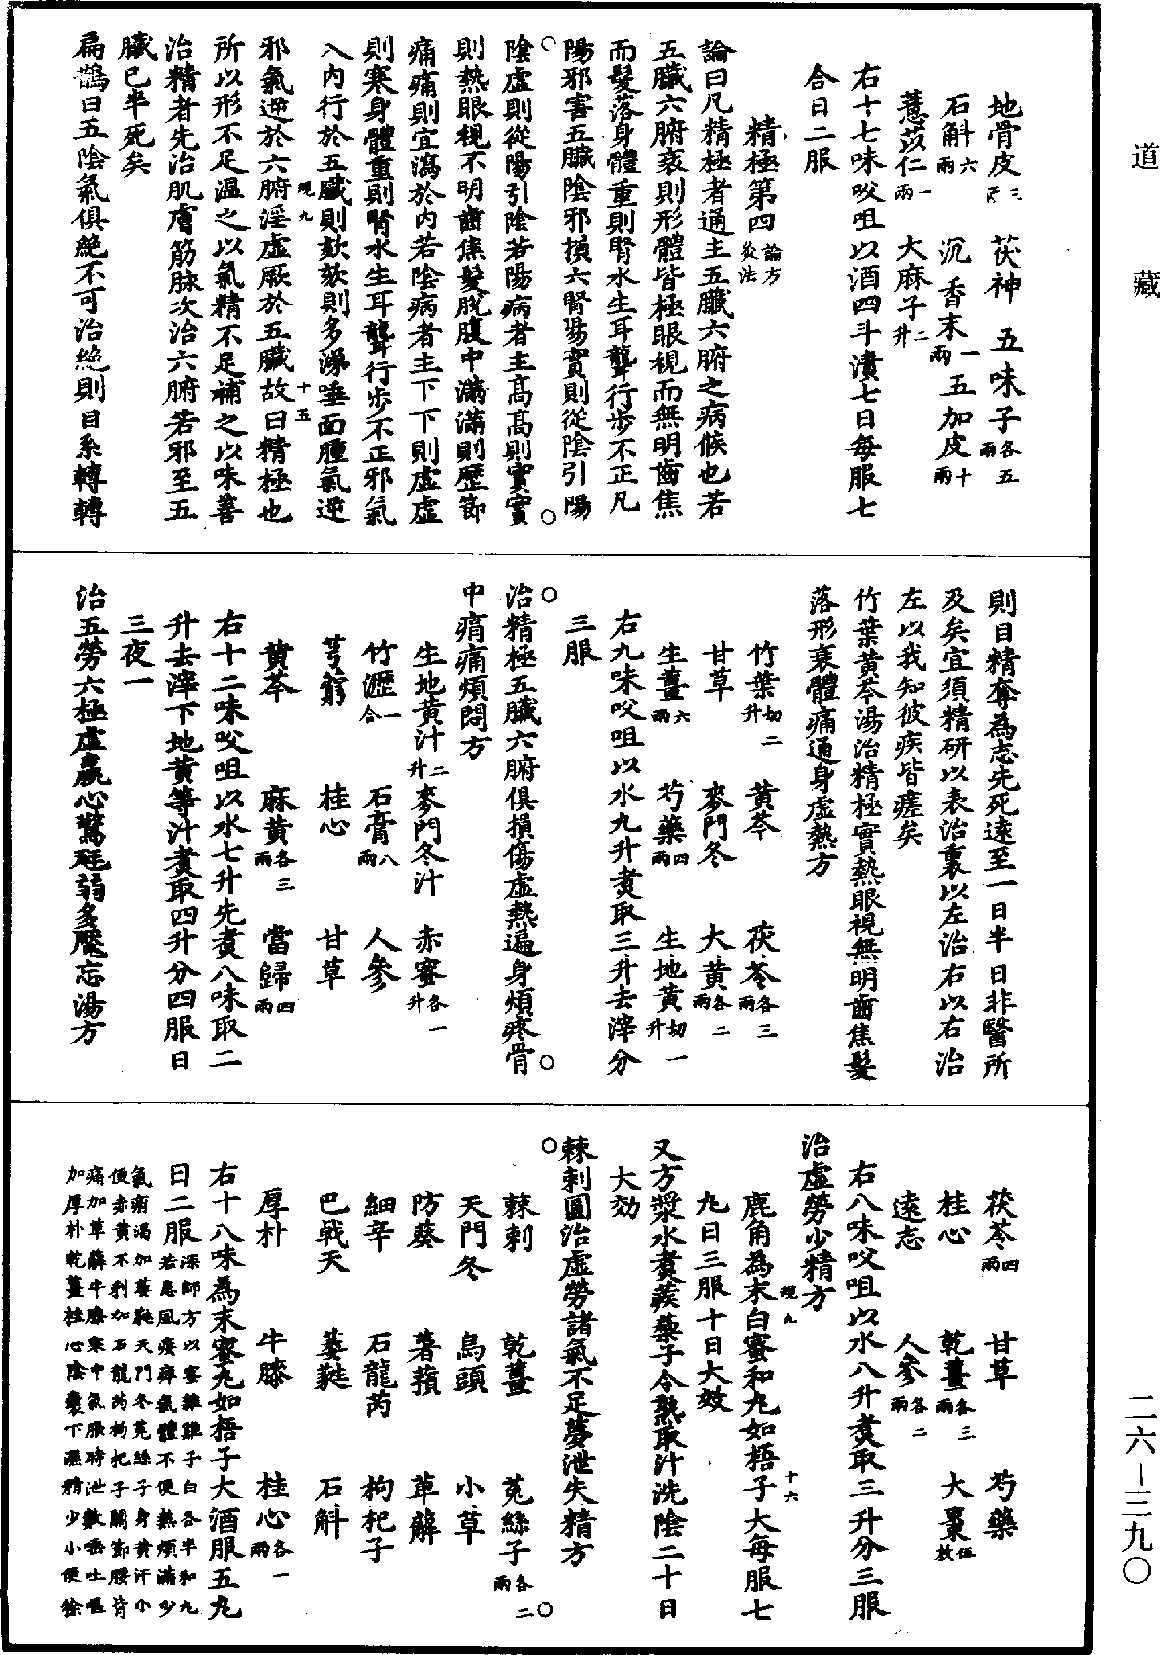 道藏
地骨皮三兩 茯神 五味子各五兩
石斛六兩 沉香末一兩 五加皮十兩
薏苡仁一兩 大麻子二升
右十七味㕮咀以酒四斗漬七日每服七
合日二服
精極第四論方灸法
論曰凡精極者通主五臟六腑之病候也若
五臟六腑衰則形體皆極眼視而無明齒焦
而髮落身體重則腎水生耳聾行步不正凡
陽邪害五臟陰邪損六腎陽實則從陰引陽
陰虛則從陽引陰若陽病者主高高則實實
則熱眼視不明齒焦髮脫腹中滿滿則歷節
痛痛則宜瀉於內若陰病者主下下則虛虛
則寒身體重則腎水生耳聾行步不正邪氣
入內行於五臟則欬欬則多涕唾面腫氣逆
邪氣逆於六腑淫虛厥於五臟故曰精極也
所以形不足溫之以氣精不足補之以味善
治精者先治肌膚筋脉次治六腑若邪至五
臟已半死矣
扁鵲曰五陰氣俱絶不可治絶則目系轉轉
則目精奪為志先死遠至一日半日非醫所
及矣宜須精研以表治裏以左治右以右治
左以我知彼疾皆瘥矣
竹葉黄芩湯治精極實熱眼視無明齒焦髮
落形衰體痛通身虛熱方
竹葉切二升 黄芩 茯苓各三兩
甘草 麥門冬 大黄各二兩
生薑六兩 芍藥四兩 生地黄切一升
右九味㕮咀以水九升煮取三升去滓分
三服
治精極五臟六腑俱損傷虛熱遍身煩疼骨
中痟痛煩悶方
生地黄汁二升 麥門冬汁 赤蜜各一升
竹瀝一合 石膏八兩 人參
芎藭 桂心 甘草
黄芩 麻黄各三兩 當歸四兩
右十二味㕮咀以水七升先煮八味取二
升去滓下地黄等汁煮取四升分四服日
三夜一
治五勞六極虛羸心驚尪弱多魘忘湯方
茯苓四兩 甘草 芍藥
桂心 乾薑各三兩 大棗伍枚
遠志 人參各二兩
右八味㕮咀以水八升煮取三升分三服
治虛勞少精方
鹿角為末白蜜和丸如梧子大每服七
丸日三服十日大效
又方漿水煮蒺䔧子令熟取汁洗陰二十日
大効
棘刺圓治虛勞諸氣不足夢泄失精方
棘刺 乾薑 菟絲子各二兩
天門冬 烏頭 小草
防葵 薯蕷 萆薢
細辛 石龍芮 枸杞子
巴戟天 萎蕤 石斛
厚朴 牛膝 桂心各一兩
右十八味為末蜜丸如梧子大酒服五丸
日二服深師方以蜜雜雞子白各半和丸若患風痿痺氣體不便熱煩滿少
氣痟渴加萎蕤天門冬菟絲子身黄汗小便赤黄不利加石龍芮枸杞子關節腰背
痛加萆薢牛膝寒中氣脹時泄數唾吐嘔加厚朴乾薑桂心陰囊下濕精少小便餘
二六—三九〇